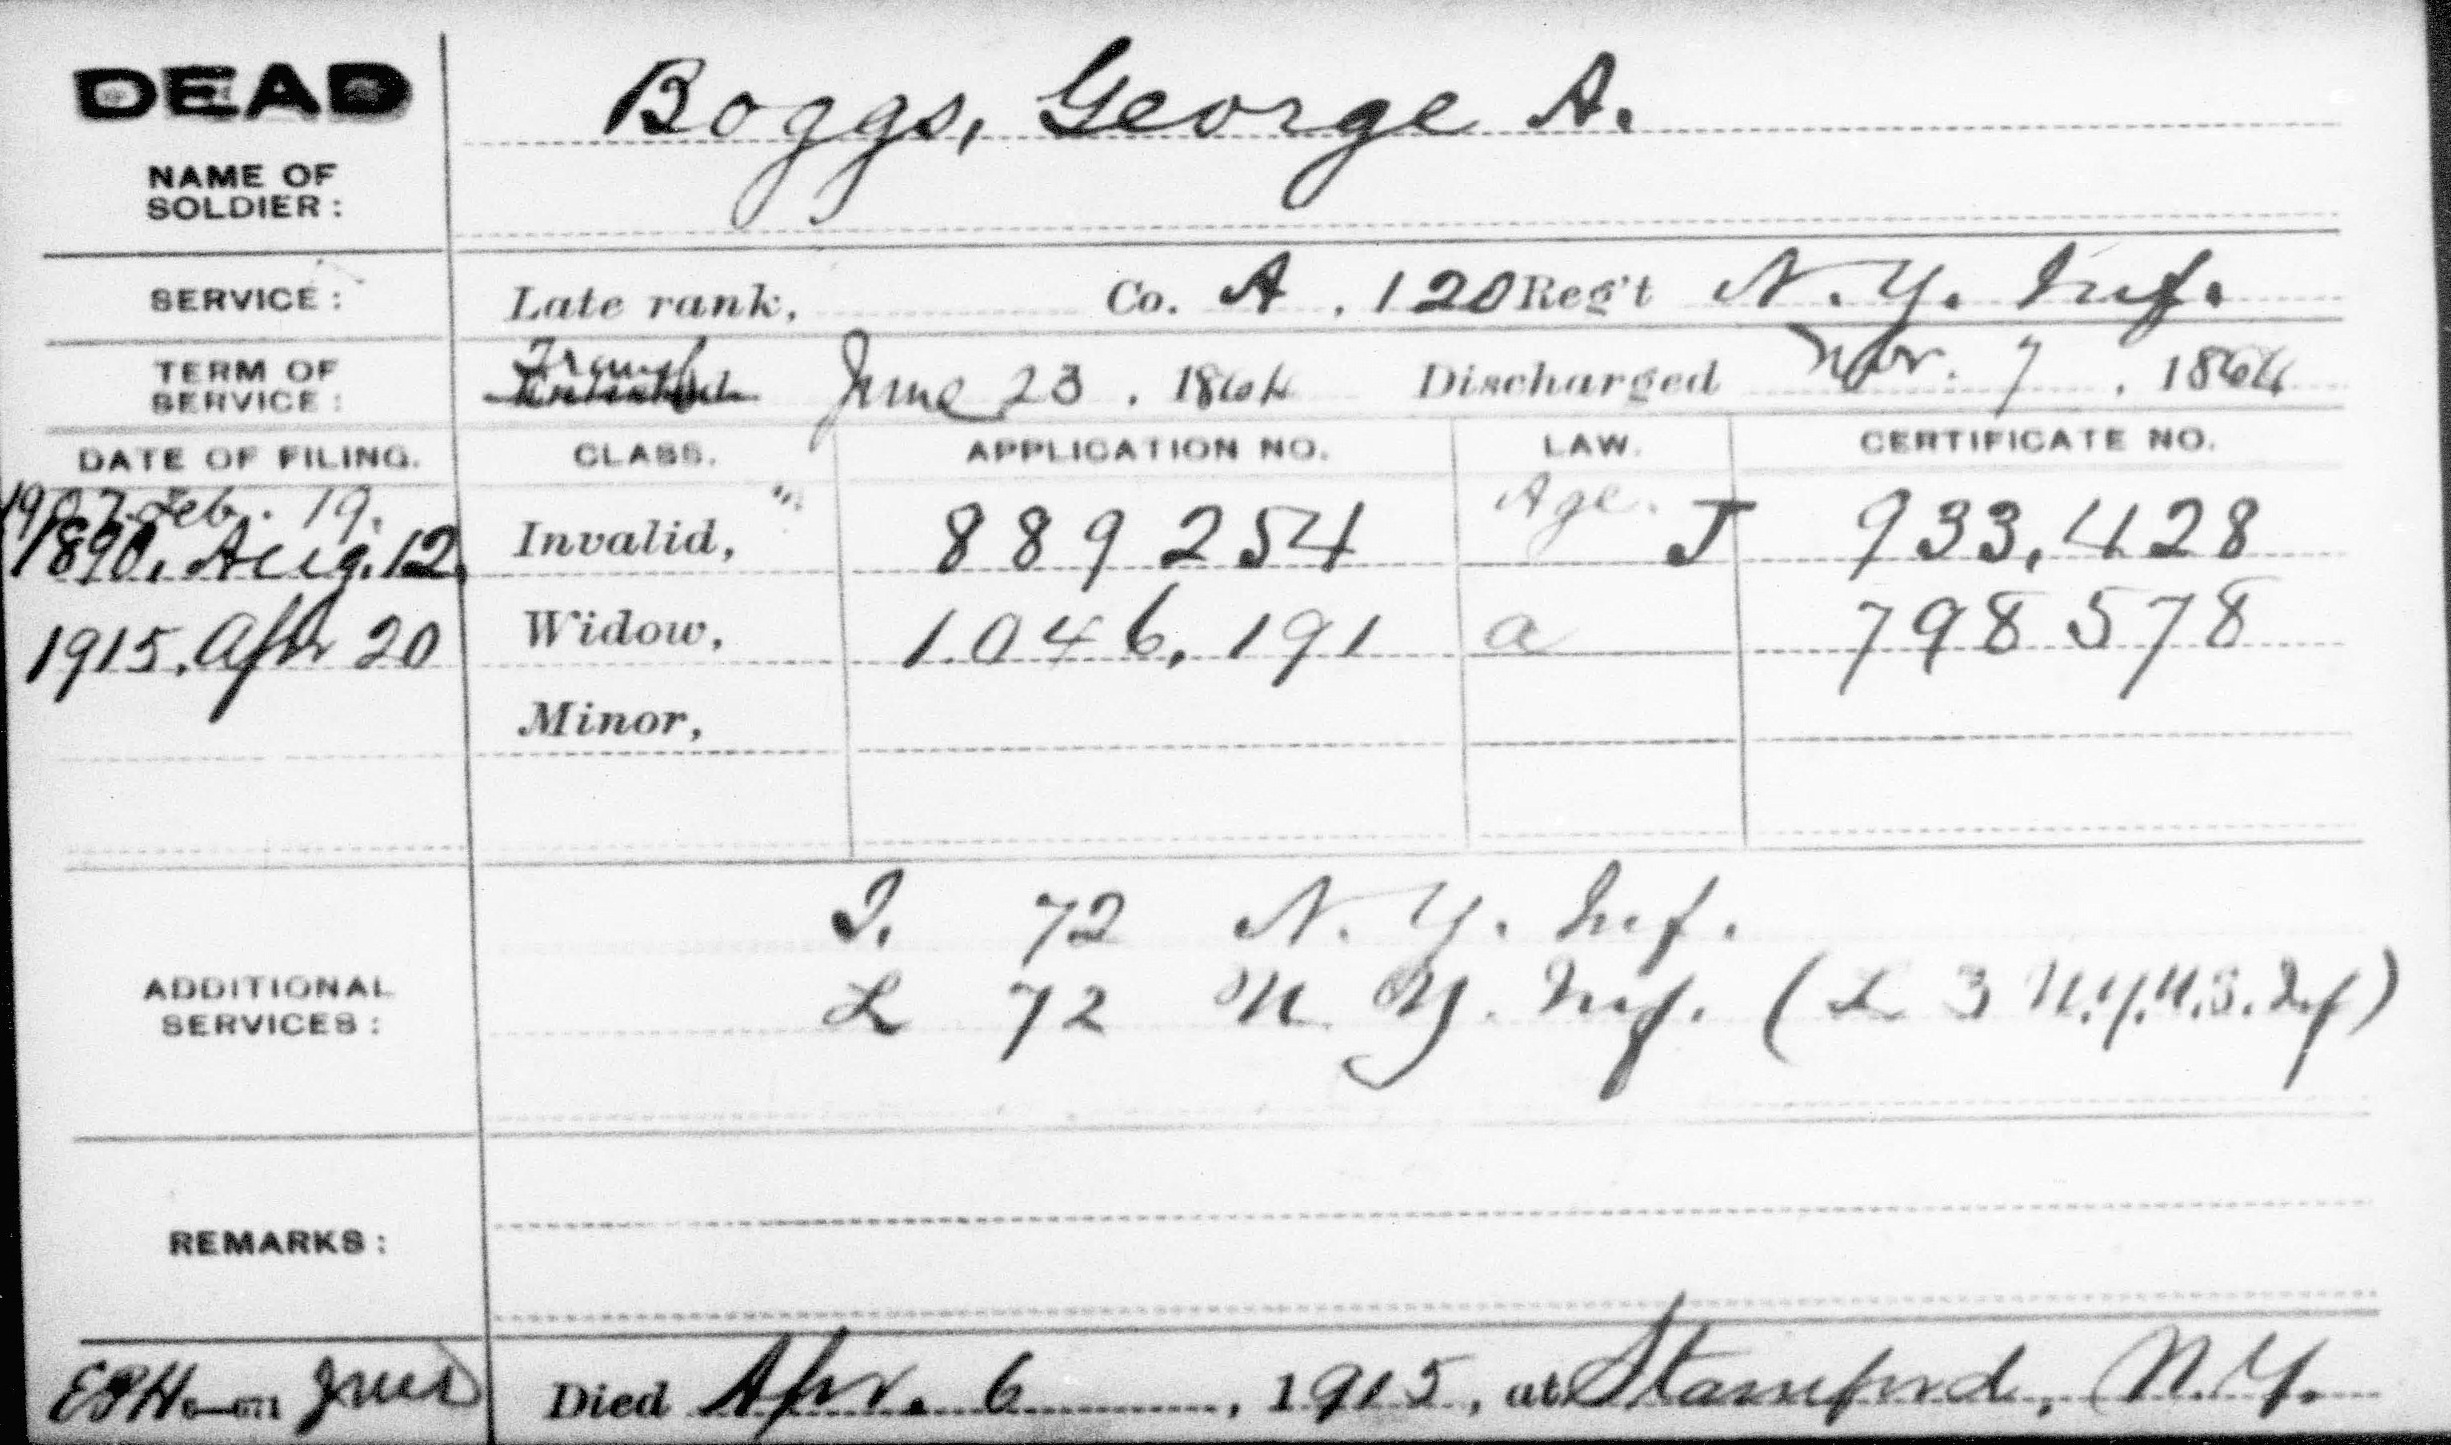 DEAD
Boggs, George A.
NAME OF
SOLDIER:
SERVICE: Late rank, Co. A, 120 Reg't N.Y. Inf.
TERM OF
SERVICE: Transf June 23, 1864 Discharged Nov. 7, 1864
DATE OF FILING. CLASS. APPLICATION NO. LAW. CERTIFICATE NO.
1907 Feb. 19. " Age.
1890, Aug. 12. Invalid, 889 254 J 933,428
1915, Apr 20 Widow, 1.046,191 a 798578
Minor,
I. 72 N.Y. Inf.
ADDITIONAL
SERVICES: L 72 N.Y. Inf. (L 3 N.Y.U.S. Inf)
REMARKS:
EPH Died Apr. 6, 1915, at Stamford, N.Y.